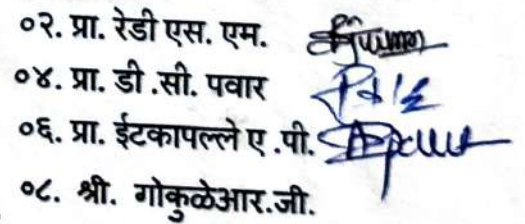 ०२. प्रा. रेडी एस. एम.
०४. प्रा. डी .सी. पवार
०६. प्रा. ईटकापल्ले ए .पी.
०८. श्री. गोकुळेआर.जी.